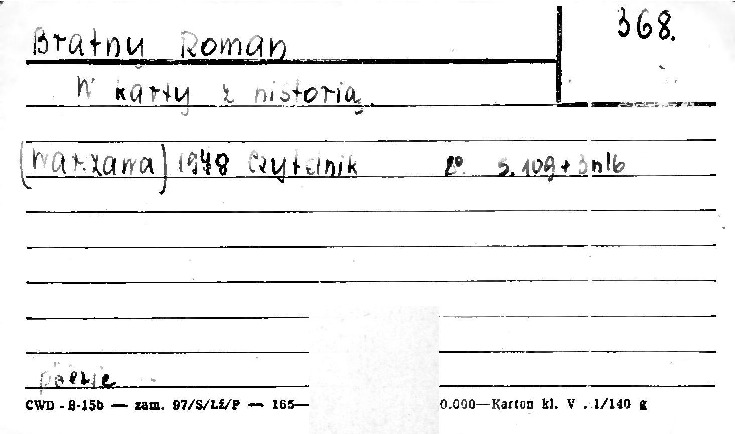 Bratny Roman
368.
W karty z historią
[Warszawa] 1948 Czytelnik 8° s. 109 + 3 nlb
poezje
CWD - 8-15b — zam. 97/S/Lź/P — 165— 0.000—Karton kl. V . 1/140 g